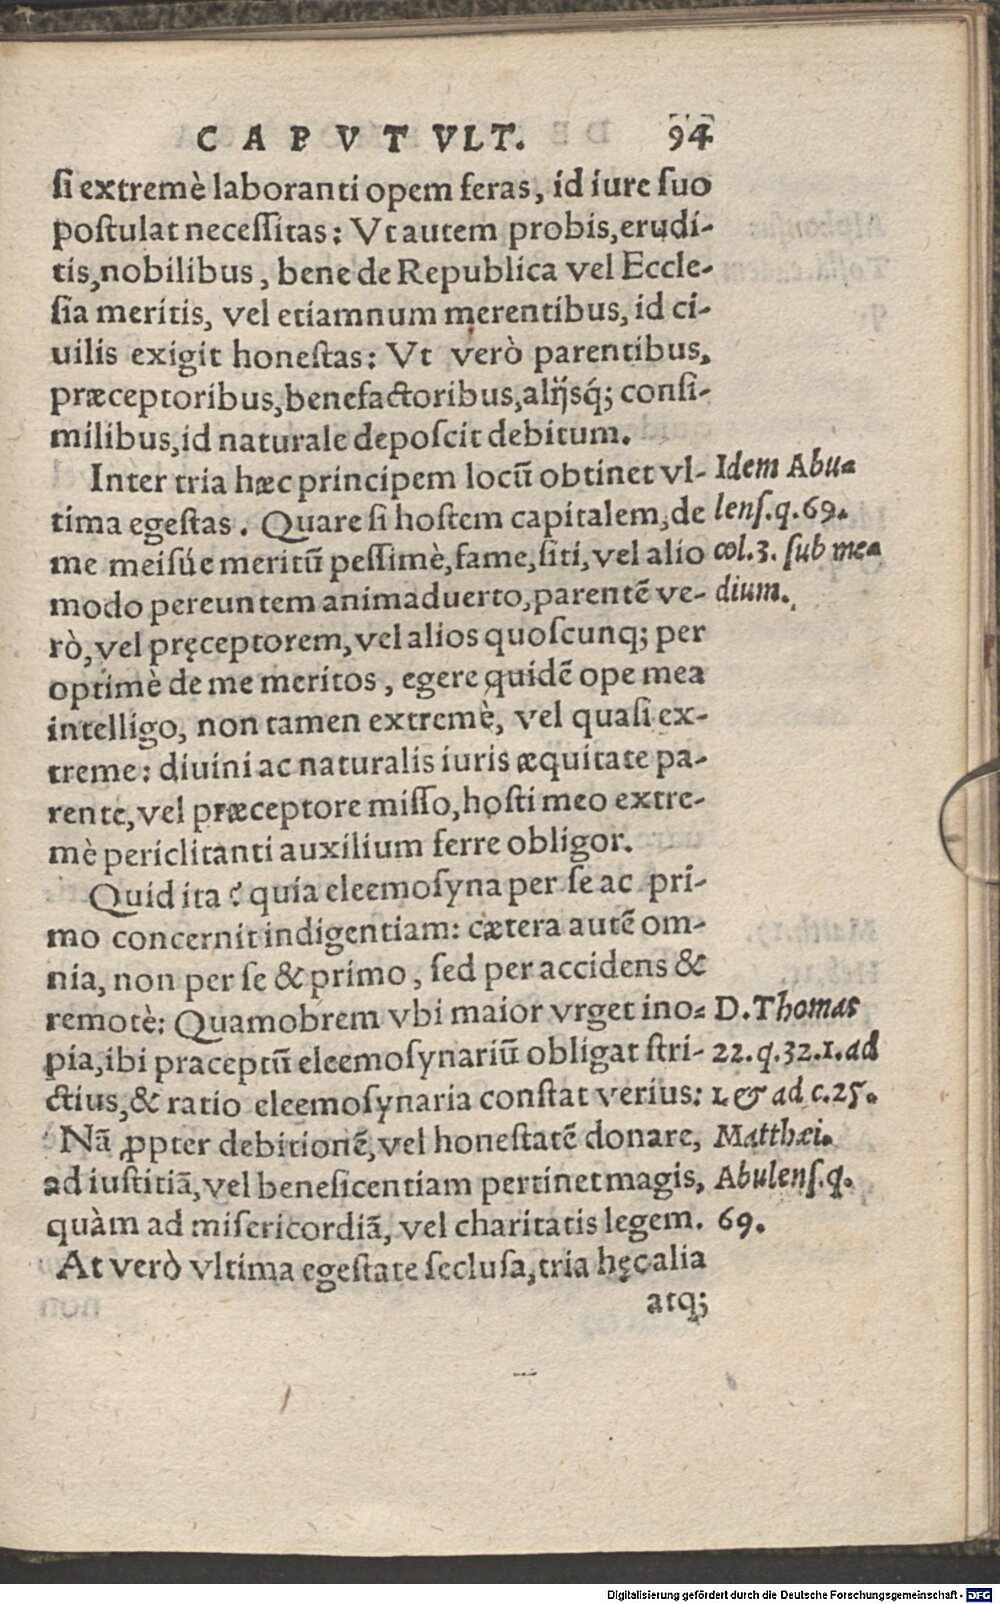 CAPVT VLT. 94
si extremè laboranti opem feras, id iure suo
postulat necessitas: Vt autem probis, erudi-
tis, nobilibus, bene de Republica vel Eccle-
sia meritis, vel etiamnum merentibus, id ci-
uilis exigit honestas: Vt verò parentibus,
præceptoribus, benefactoribus, alijsq́; consi-
milibus, id naturale deposcit debitum.
Inter tria hæc principem locū obtinet vl-
tima egestas. Quare si hostem capitalem, de
me meisúe meritū pessimè, fame, siti, vel alio
modo pereuntem animaduerto, parentē ve-
rò, vel pręceptorem, vel alios quoscunq; per
optimè de me meritos, egere quidē ope mea
intelligo, non tamen extremè, vel quasi ex-
treme: diuini ac naturalis iuris æquitate pa-
rente, vel præceptore misso, hosti meo extre-
mè periclitanti auxilium ferre obligor.
Quid ita? quia eleemosyna per se ac pri-
mo concernit indigentiam: cætera autē om-
nia, non per se & primo, sed per accidens &
remotè: Quamobrem vbi maior vrget ino-
pia, ibi praceptū eleemosynariū obligat stri-
ctius, & ratio eleemosynaria constat verius:
Nā ꝓpter debitionē, vel honestatē donare,
ad iustitiā, vel beneficentiam pertinet magis,
quàm ad misericordiā, vel charitatis legem.
At verò vltima egestate seclusa, tria hęc alia
atq;
Idem Abu-
lens. q. 69.
col. 3. sub me-
dium.
D. Thomas
22. q. 32. 1. ad
1. & ad c. 25.
Matthæi.
Abulens. q.
69.
Digitalisierung gefördert durch die Deutsche Forschungsgemeinschaft - DFG